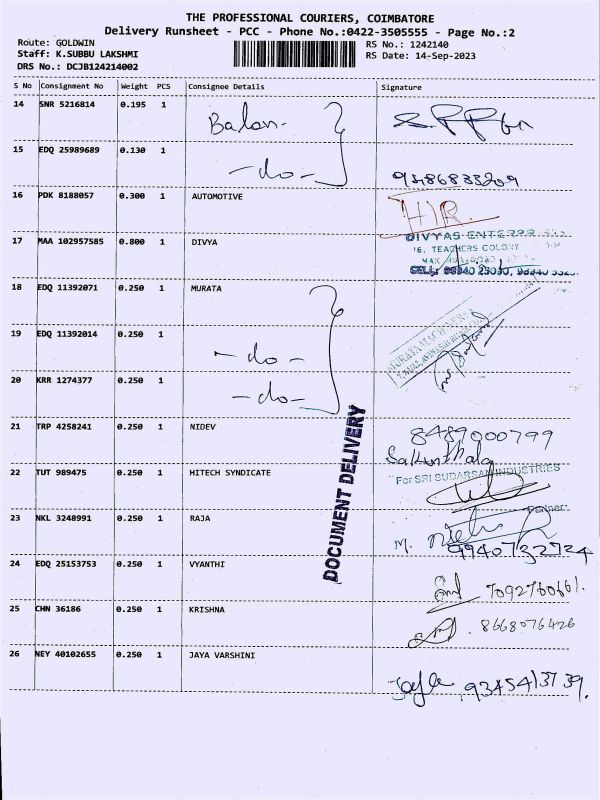 THE PROFESSIONAL COURIERS, COIMBATORE
Delivery Runsheet - PCC - Phone No.:0422-3505555 - Page No.:2
Route: GOLDWIN RS No.: 1242140
Staff: K.SUBBU LAKSHMI RS Date: 14-Sep-2023
DRS No.: DCJB124214002
S No Consignment No Weight PCS Consignee Details Signature
14 SNR 5216814 0.195 1 Balan-
15 EDQ 25989689 0.130 1 -do-
16 PDK 8188057 0.300 1 AUTOMOTIVE
17 MAA 102957585 0.800 1 DIVYA
DIVYAS
TEACHERS COLONY
18 EDQ 11392071 0.250 1 MURATA
19 EDQ 11392014 0.250 1 -do-
20 KRR 1274377 0.250 1 -do-
21 TRP 4258241 0.250 1 NIDEV 8489000799
Sakunthala
22 TUT 989475 0.250 1 HITECH SYNDICATE For SRI SUDARSAN INDUSTRIES
Partner
23 NKL 3248991 0.250 1 RAJA M. 9940732724
24 EDQ 25153753 0.250 1 VYANTHI 7092760661.
25 CHN 36186 0.250 1 KRISHNA 8668076426
26 NEY 40102655 0.250 1 JAYA VARSHINI
DOCUMENT DELIVERY